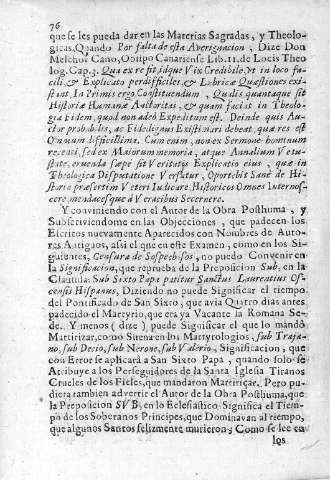 76
que se les pueda dar en las Materias Sagradas, y Theolo-
gicas, Quando Por falta de esta Averiguacion, Dize Don
Melchor Cano, Obispo Canariense Lib. 11. de Locis Theo
log. Cap. 3. Qua ex re fit idque Vix Credibile, Vt in loco fa-
cili, & Explicato perdifficiles, & Lubricæ Quæstiones exi-
stant. In Primis ergo Constituendum, Qualis quantaque sit
Historiæ Humanæ Auctoritas, & quam facias in Theolo-
gia Fidem, quod non adeò Expeditum est. Deinde quis Au-
ctor probabilis, ac Fide dignus Existimari debeat, quæ res est
Omnium difficillima. Cum enim, non ex Sermone hominum
recenti, sed ex Maiorum memoria, atque Annalium Vetu-
state, eruenda sæpe sit Veritatis Explicatio eius, quæ in
Theologica Disputatione Versatur, Oportebit Sanè de Hi-
storia præsertim Veteri Iudicare, Historicos Omnes Internos-
cere, mendacesque à Veracibus Secernere.
Y conviniendo con el Autor de la Obra Posthuma, y
Subscriviendome en las Objecciones, que padecen los
Escritos nuevamente Aparecidos con Nombres de Auto-
res Antigos, assi el que en este Examen, como en los Si-
guientes, Censura de Sospechosos, no puedo Convenir en
la Significacion, que reprueba de la Preposicion Sub, en la
Clausula: Sub Sixto Papa patitur Sanctus Laurentius Os-
censis Hispanus, Diziendo no puede Significar el tiempo
del Pontificado de San Sixto, que avia Quatro dias antes
padecido el Martyrio, que era ya Vacante la Romana Se-
de. Y menos ( dize ) puede Significar el que lo mandò
Martirizar, como Suena en los Martyrologios, sub Traja-
no, sub Decio, sub Nerone, sub Valerio, Significacion, que
con Error se aplicarà a San Sixto Papa, quando solo se
Atribuye a los Perseguidores de la Santa Iglesia Tiranos
Crueles de los Fieles, que mandaron Martirizar. Pero pu-
diera tambien advertir el Autor de la Obra Posthuma, que
la Preposicion SVB, en lo Eclesiastico Significa el Tiem-
po de los Soberanos Principes, que Dominavan al Tiempo,
que algunos Santos felizmente murieron, Como se lee en
los